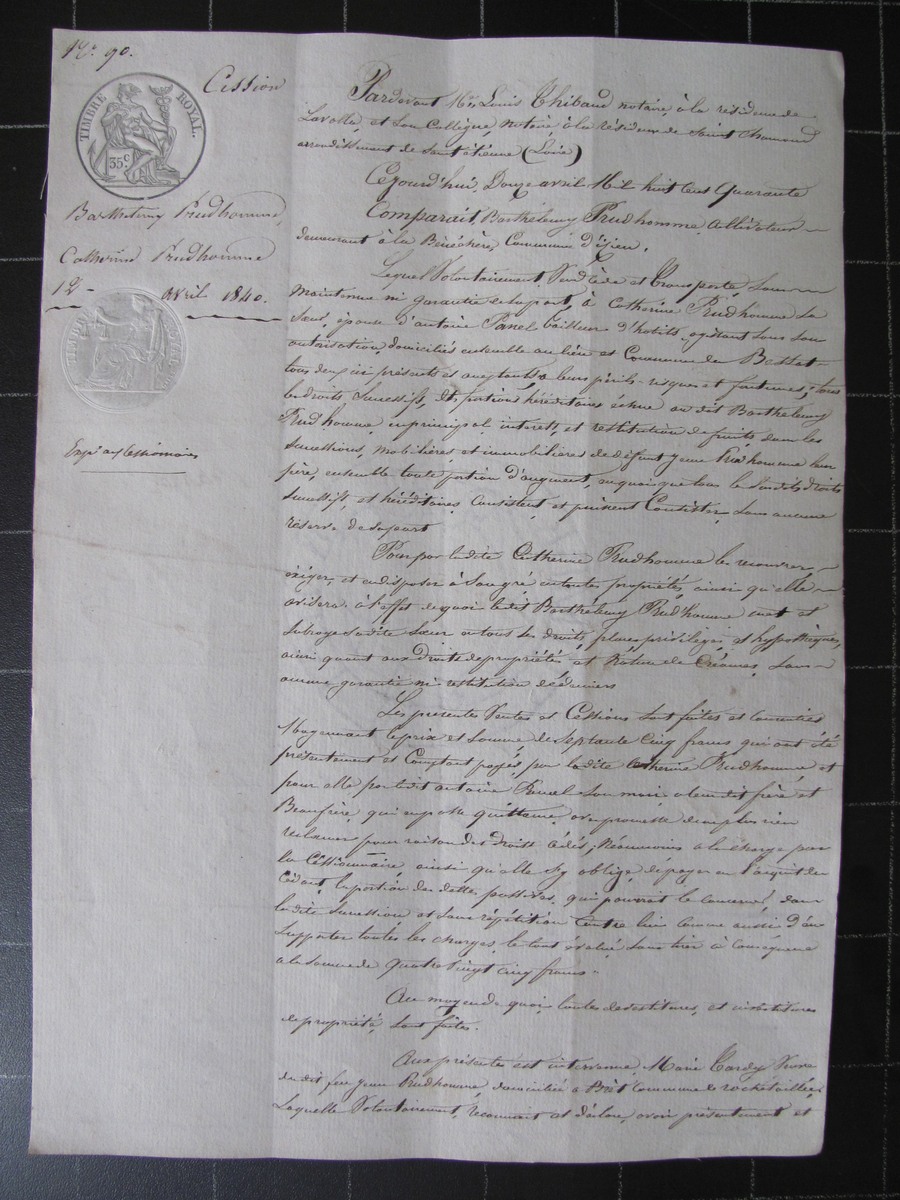 N° 90.
Cession
TIMBRE ROYAL.
35 c
Barthelemy Prudhomme,
Catherine Prudhomme
12 avril 1840.
Exp. aux cessionnaires
Pardevant Me Louis Thibaud notaire à la résidence de
Lavalla, et son Collègue notaire à la résidence de Saint Chamond
arrondissement de Saint étienne (Loire)
Cejourd'hui, Douze avril Mil huit cent Quarante
Comparait, Barthélemy Prudhomme, Cultivateur
demeurant à la Bénéchère, Commune d'Izieu.
Lequel Volontairement, Vend Cède et Transporte, sans
maintenue ni garantie de sa part, à Catherine Prudhomme sa
sœur, épouse d'antoine Panel tailleur d'habits, agissant sous son
autorisation, domiciliés ensemble au lieu et Commune de Bessat
tous deux ici présents et acceptants à leurs périls, risques et fortunes; tous
les droits Successifs, et portions héréditaires échue au dit Barthelemy
Prudhomme, en principal interets, et restitution de fruits dans les
successions, mobilières et immobilières de défunt Jean Prudhomme leur
père, ensemble toute portion d'augment, en quoi que tous les susdits droits
successifs, et héréditaires, Consistent, et puissent Consister, sans aucune
réserve de sa part
Pour par ladite Catherine Prudhomme les recouvrer,
exiger, et en disposer à son gré en toutes propriétés, ainsi qu'elle
avisera. à l'effet de quoi ledit Barthélemy Prudhomme met et
subroge sadite sœur en tous les droits, places, privilèges, et hypothèques,
ainsi quant aux Droits de propriétés, et Nature de Créances, sans
aucune garantie ni restitution de deniers
Les présentes Ventes et Cessions sont faites et Consenties
Moyennant le prix et Somme de Septante Cinq francs qui ont été
présentement et Comptant payés, par ladite Catherine Prudhomme et
pour elle par ledit antoine Panel son mari, à leur dit frère et
Beaufrère qui en passe quittance, avec promesse de ne plus rien
réclamer pour raison des Droits Cédés; Néanmoins à la charge par
la Cessionnaire, ainsi qu'elle s'y oblige, de payer en l'acquit du
Cédant, la portion des dettes passives, qui pourrait le concerner, dans
ladite Succession, et sans répétition Contre lui Comme aussi d'en
Supporter toutes les charges, le tout évalué, sans tirer à Conséquence
à la somme de Quatre Vingt Cinq francs.
Au moyen de quoi, toutes devestitures, et investitures
de propriété, sont faites.
Aux présentes est intervenue, Marie Tardy Veuve
du dit feu Jean Prudhomme, domiciliée à Commune de rochetaillée,
Laquelle Volontairement, reconnait et déclare, avoir présentement et